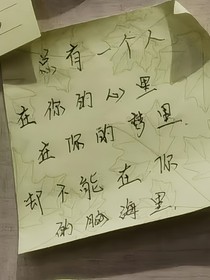 总有一个人
在你的心里
在你的梦里.
却不能在你
的脑海里.